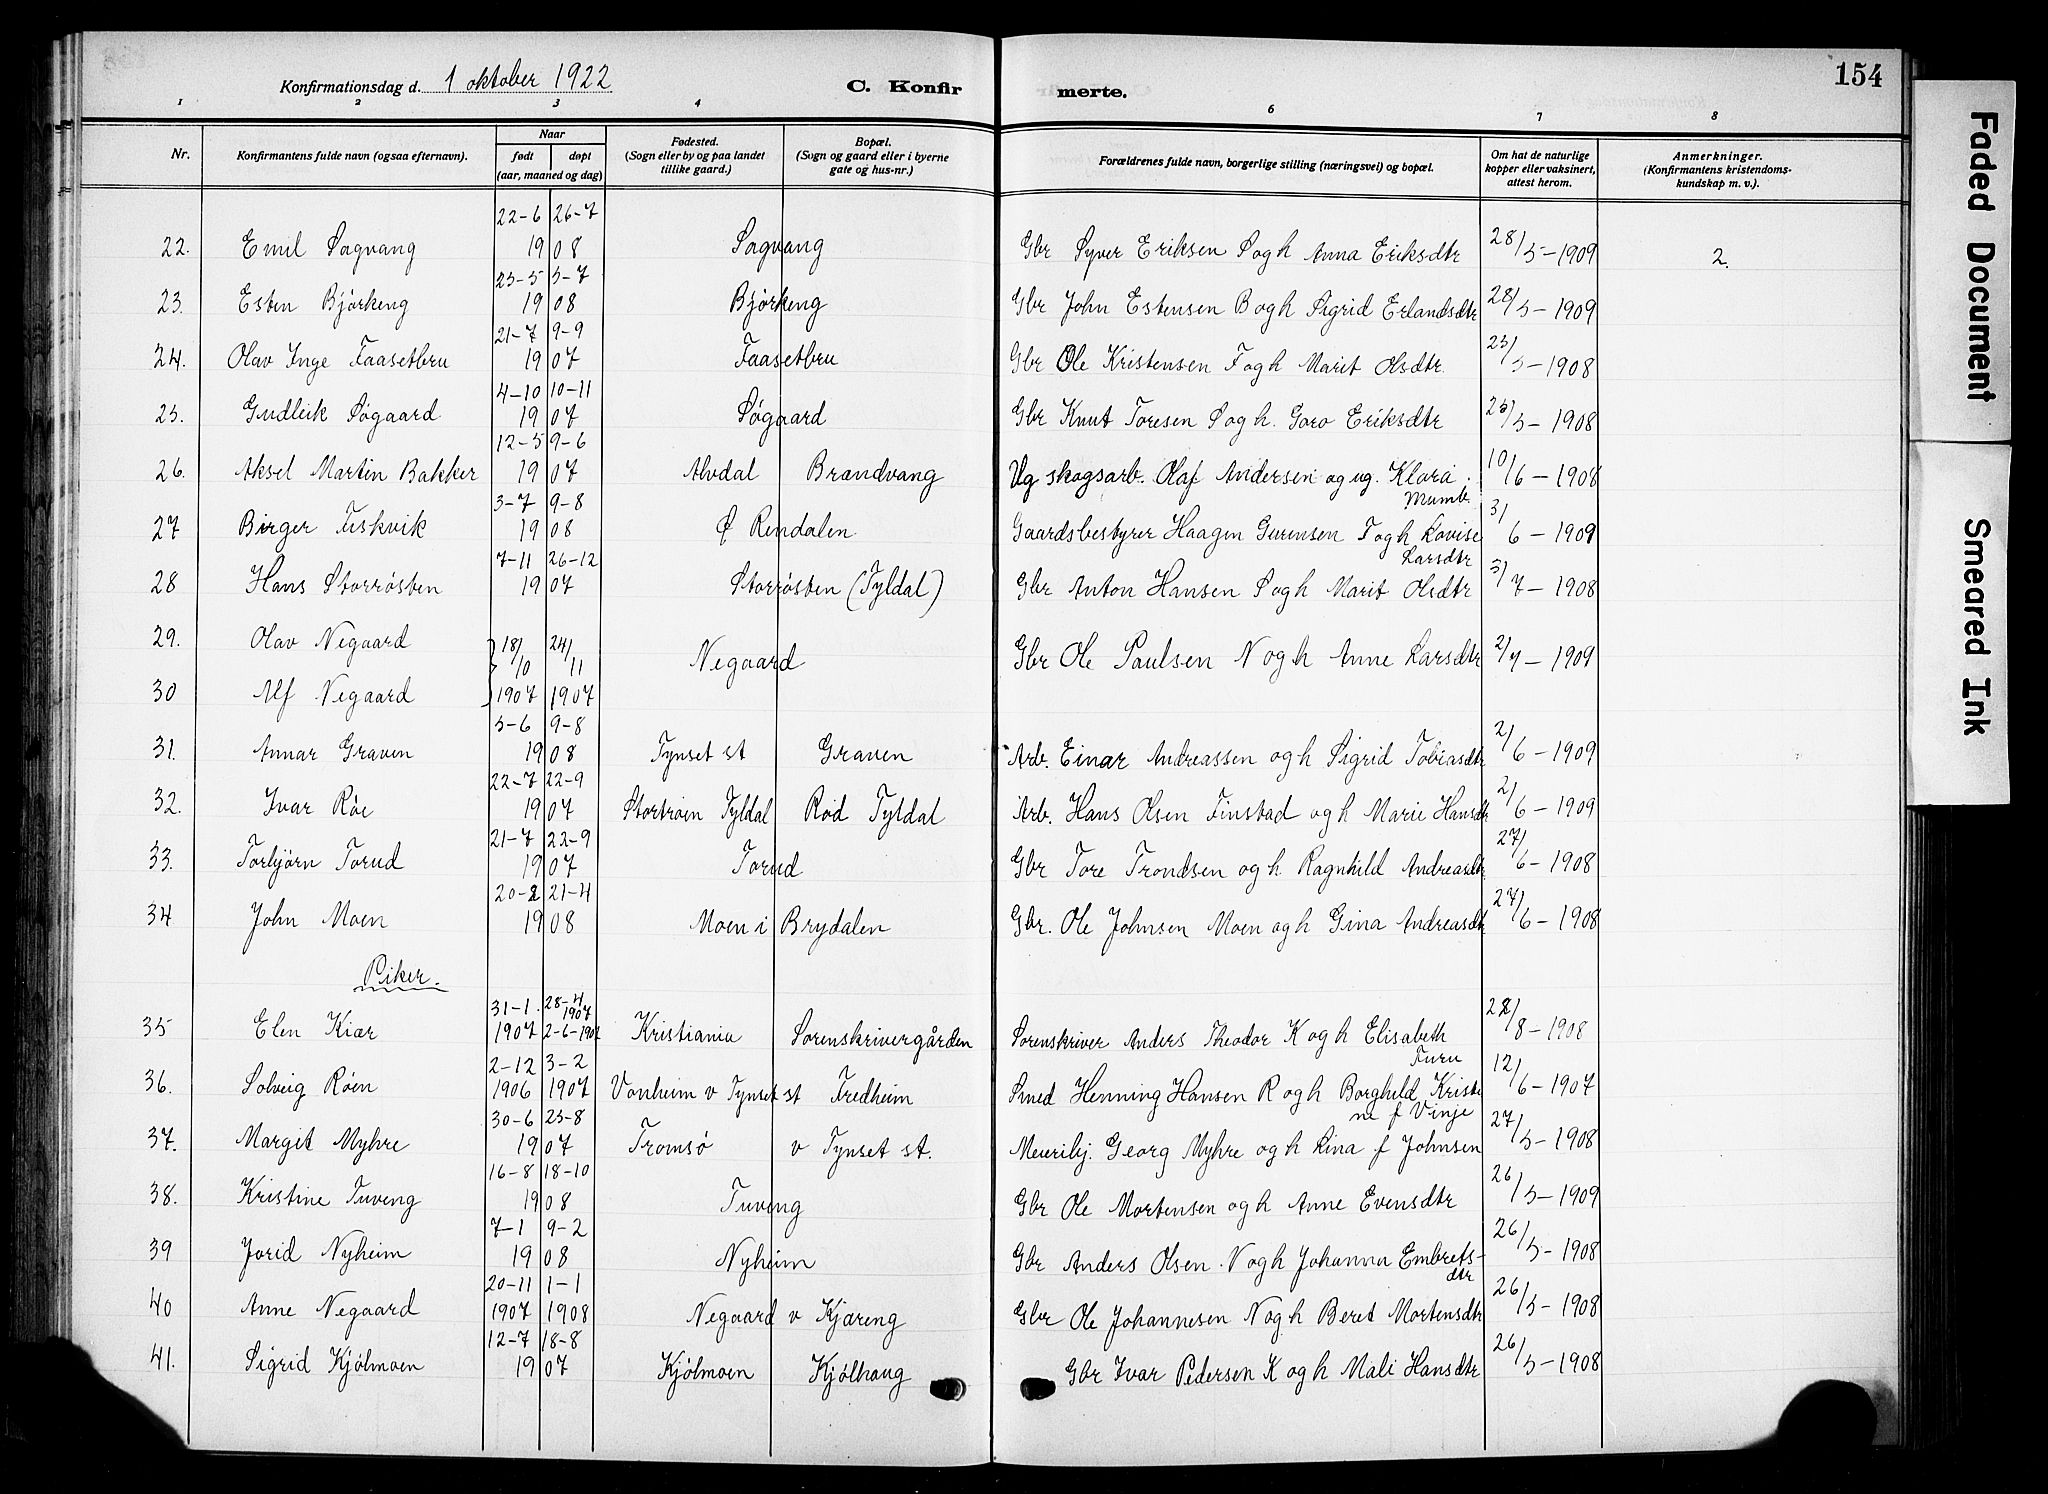 154
Konfirmationsdag d. 1 oktober 1922 C. Konfirmerte.
1 2 3 4 5 6 7 8
Nr. Konfirmantens fulde navn (ogsaa efternavn). Naar født døpt (aar, maaned og dag) Fødested. (Sogn eller by og paa landet tillike gaard.) Bopæl. (Sogn og gaard eller i byerne gate og hus-nr.) Forældrenes fulde navn, borgerlige stilling (næringsvei) og bopæl. Om hat de naturlige kopper eller vaksinert, attest herom. Anmerkninger. (Konfirmantens kristendomskundskap m. v.).
22. Emil Søgvang 22-6 26-7 1908 Søgvang Gbr Syver Eriksen S og h Anna Eriksdtr 28/5-1909 2.
23. Esten Bjørkeng 25-5 5-7 1908 Bjørkeng Gbr John Estensen B og h Sigrid Erlandsdtr 28/5-1909
24. Olav Inge Faasetbru 21-7 9-9 1907 Faasetbru Gbr Ole Kristensen F og h Marit Olsdtr. 25/5-1908
25. Gudleik Søgaard 4-10 10-11 1907 Søgaard Gbr Knut Toresen S og h. Goro Eriksdtr 25/5-1908
26. Aksel Martin Bakker 12-5 9-6 1907 Alvdal Brandvang Ug skogsarb. Olaf Andersen og ug. Klara 10/6-1908
27 Birger Fiskvik 3-7 9-8 1908 Ø Rendalen Gaardsbestyrer Haagen Gurensen F og h Lovise Larsdtr 3/6-1909
28 Hans Storrøsten 7-11 26-12 1907 Storrøsten (Tyldal) Gbr Anton Hansen S og h Marit Olsdtr 3/7-1908
29. Olav Negaard } 18/10 24/11 Negaard Gbr Ole Paulsen N og h Anne Larsdtr 2/7-1909
30 Alf Negaard } 1907 1907
31. Annar Graven 5-6 9-8 1908 Tynset st Graven Arb. Einar Andreassen og h Sigrid Tobiasdtr 2/6-1909
32. Ivar Røe 22-7 22-9 1907 Stortrøen Tyldal Rød Tyldal Arb. Hans Olsen Finstad og h Marie Hansdtr 2/6-1909
33. Torbjörn Torud 21-7 22-9 1907 Torud Gbr Tore Trondsen og h Ragnhild Andreasdtr 27/6-1908
34 John Moen 20-2 21-4 1908 Moen i Brydalen Gbr. Ole Johnsen Moen og h Gina Andreasdtr 27/6-1908
Piker.
35 Elen Kiær 31-1. 1907 28-4 1907 2-6-1907 Kristiania Sorenskrivergården Sorenskriver Anders Theodor K og h Elisabeth Furu 22/8-1908
36. Solveig Røen 2-12 1906 3-2 1907 Vonheim v Tynset st Fredheim Smed Henning Hansen R og h Borghild Kristine f Vinje 12/6-1907
37. Margit Myhre 30-6 25-8 1907 Tromsø v Tynset st. Meieribj. Georg Myhre og h Lina f Johnsen 27/5-1908
38. Kristine Tuveng 16-8 18-10 1908 Tuveng Gbr Ole Mortensen og h Anne Evensdtr 26/5-1909
39 Jorid Nyheim 7-1 9-2 1908 Nyheim Gbr Anders Olsen N og h Johanna Embretsdtr 26/5-1908
40 Anne Negaard 20-11 1907 1-1 1908 Negaard v Kjæreng Gbr Ole Johannesen N og h Beret Mortensdtr 26/5-1908
41. Sigrid Kjølmoen 12-7 18-8 1907 Kjølmoen Kjølhaug Gbr Ivar Pedersen K og h Mali Hansdtr 26/5-1908
Faded Document
Smeared Ink